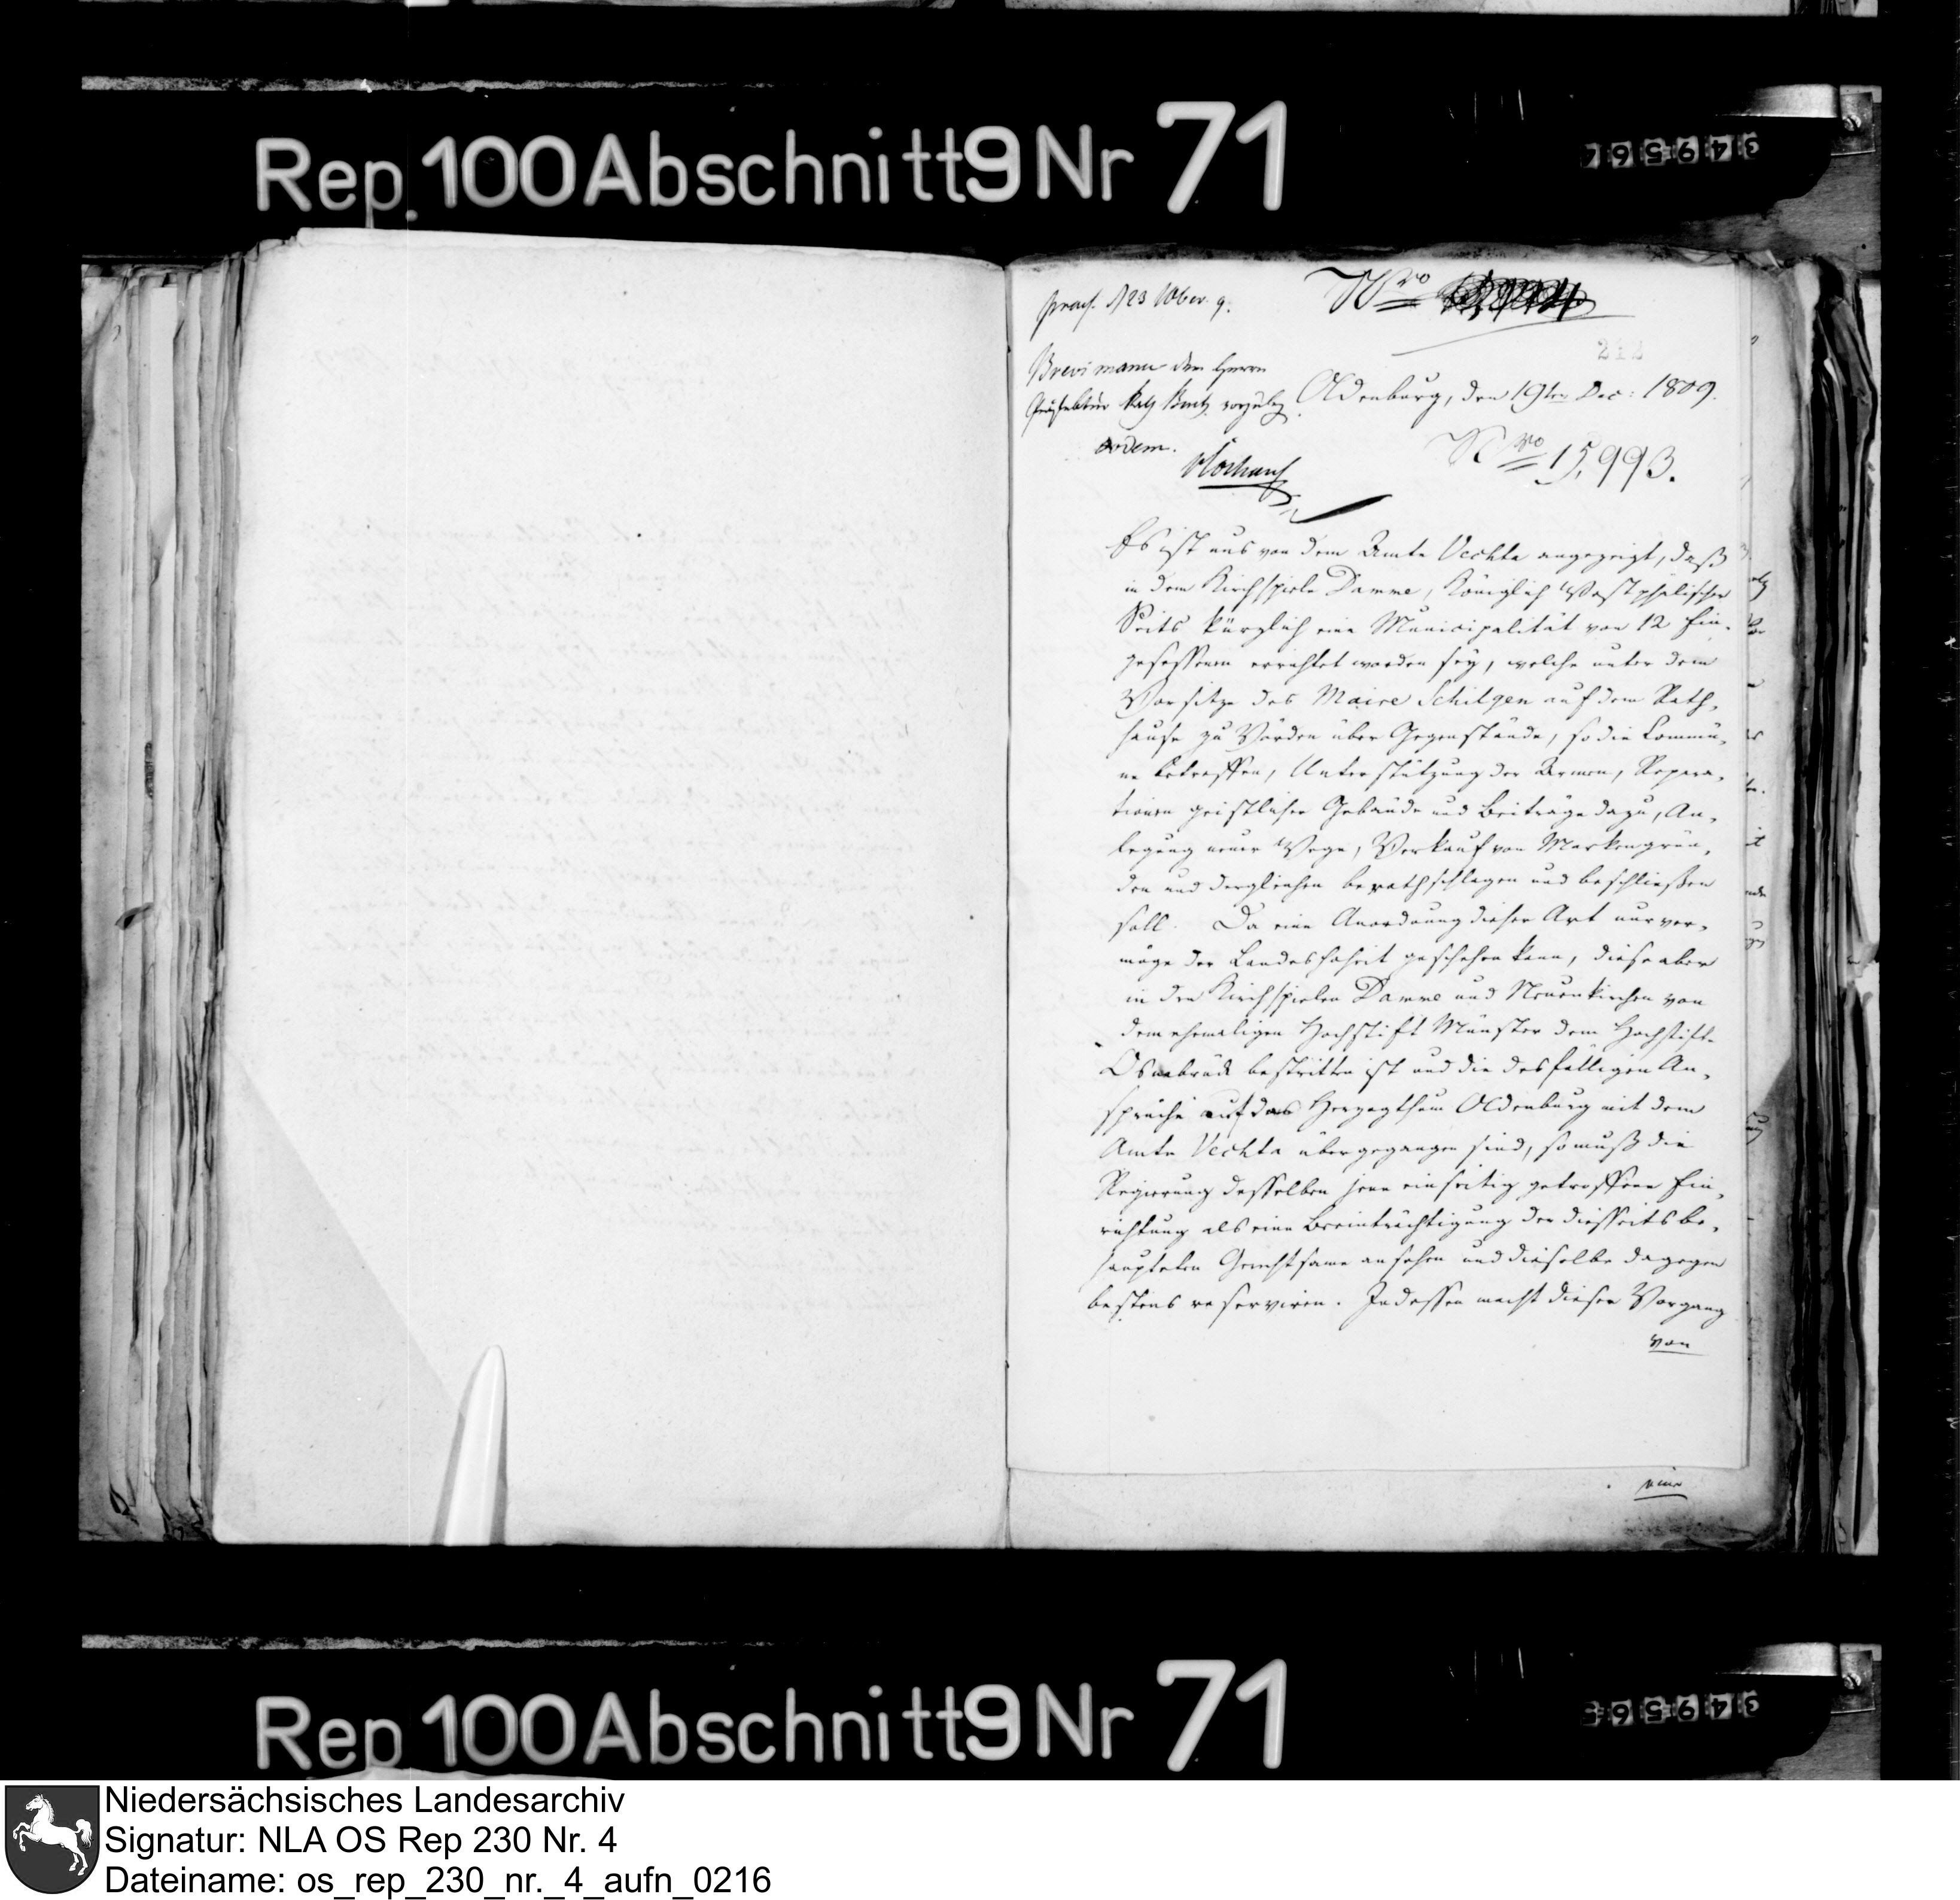 Rep. 100 Abschnitt 9 Nr 71
349564
praes. d 23 Xber. 9.
Nro
212
Brevi manu dem Herrn
Präfectur Rath vorzuleg
Oldenburg, den 19ten Dec: 1809.
eodem.
Nro 15,993.
Es ist uns von dem Amte Vechta angezeigt, daß
in dem Kirchspiele Damme, Königlich Westphälischer
Seits kürzlich eine Municipalität von 12 Ein-
gesessenen errichtet worden sey, welche unter dem
Vorsitze des Maire Schilgen auf dem Rath-
hause zu Vörden über Gegenstände, so die Commu-
ne betreffen, Unterstützung der Armen, Repara-
tionen geistlicher Gebäude und Beiträge dazu, An-
legung neuer Wege, Verkauf von Markengrün-
den und dergleichen berathschlagen und beschließen
soll. Da eine Anordnung dieser Art nur ver-
möge der Landeshoheit geschehen kann, diese aber
in den Kirchspielen Damme und Neuenkirchen von
dem ehemaligen Hochstift Münster dem Hochstifte
Osnabrück bestritten ist und die desfälligen An-
sprüche auf das Herzogthum Oldenburg mit dem
Amte Vechta übergegangen sind, so muß die
Regierung desselben jene einseitig getroffene Ein-
richtung als eine Beeinträchtigung der diesseits be-
haupteten Gerechtsame ansehen und dieselbe dagegen
bestens reserviren. Indessen macht dieser Vorgang
von
eine
Rep 100 Abschnitt 9 Nr 71
Niedersächsisches Landesarchiv
Signatur: NLA OS Rep 230 Nr. 4
Dateiname: os_rep_230_nr._4_aufn_0216